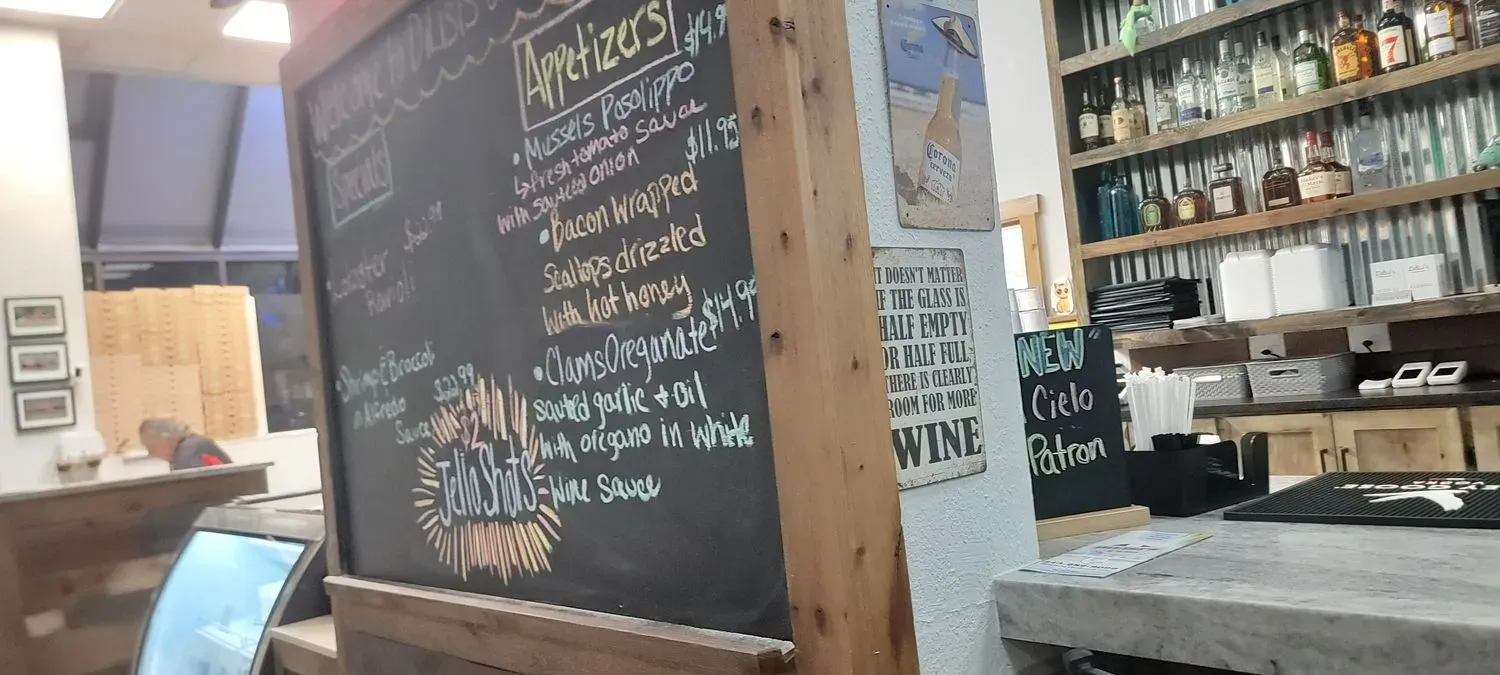 Welcome to
Specials
Lobster
Ravioli
Shrimp & Broccoli
in Alfredo
Sauce
$22.99
$2
Jello Shots
Appetizers
• Mussels Posolippo
↳ fresh tomato sauce
with sauteed onion
$11.95
• Bacon Wrapped
Scallops drizzled
with hot honey
• Clams Oreganate $14.9
sauted garlic + oil
with oregano in white
Wine Sauce
Corona
Corona
cerveza
IT DOESN'T MATTER
IF THE GLASS IS
HALF EMPTY
OR HALF FULL
THERE IS CLEARLY
ROOM FOR MORE
WINE
NEW
Cielo
Patron
7